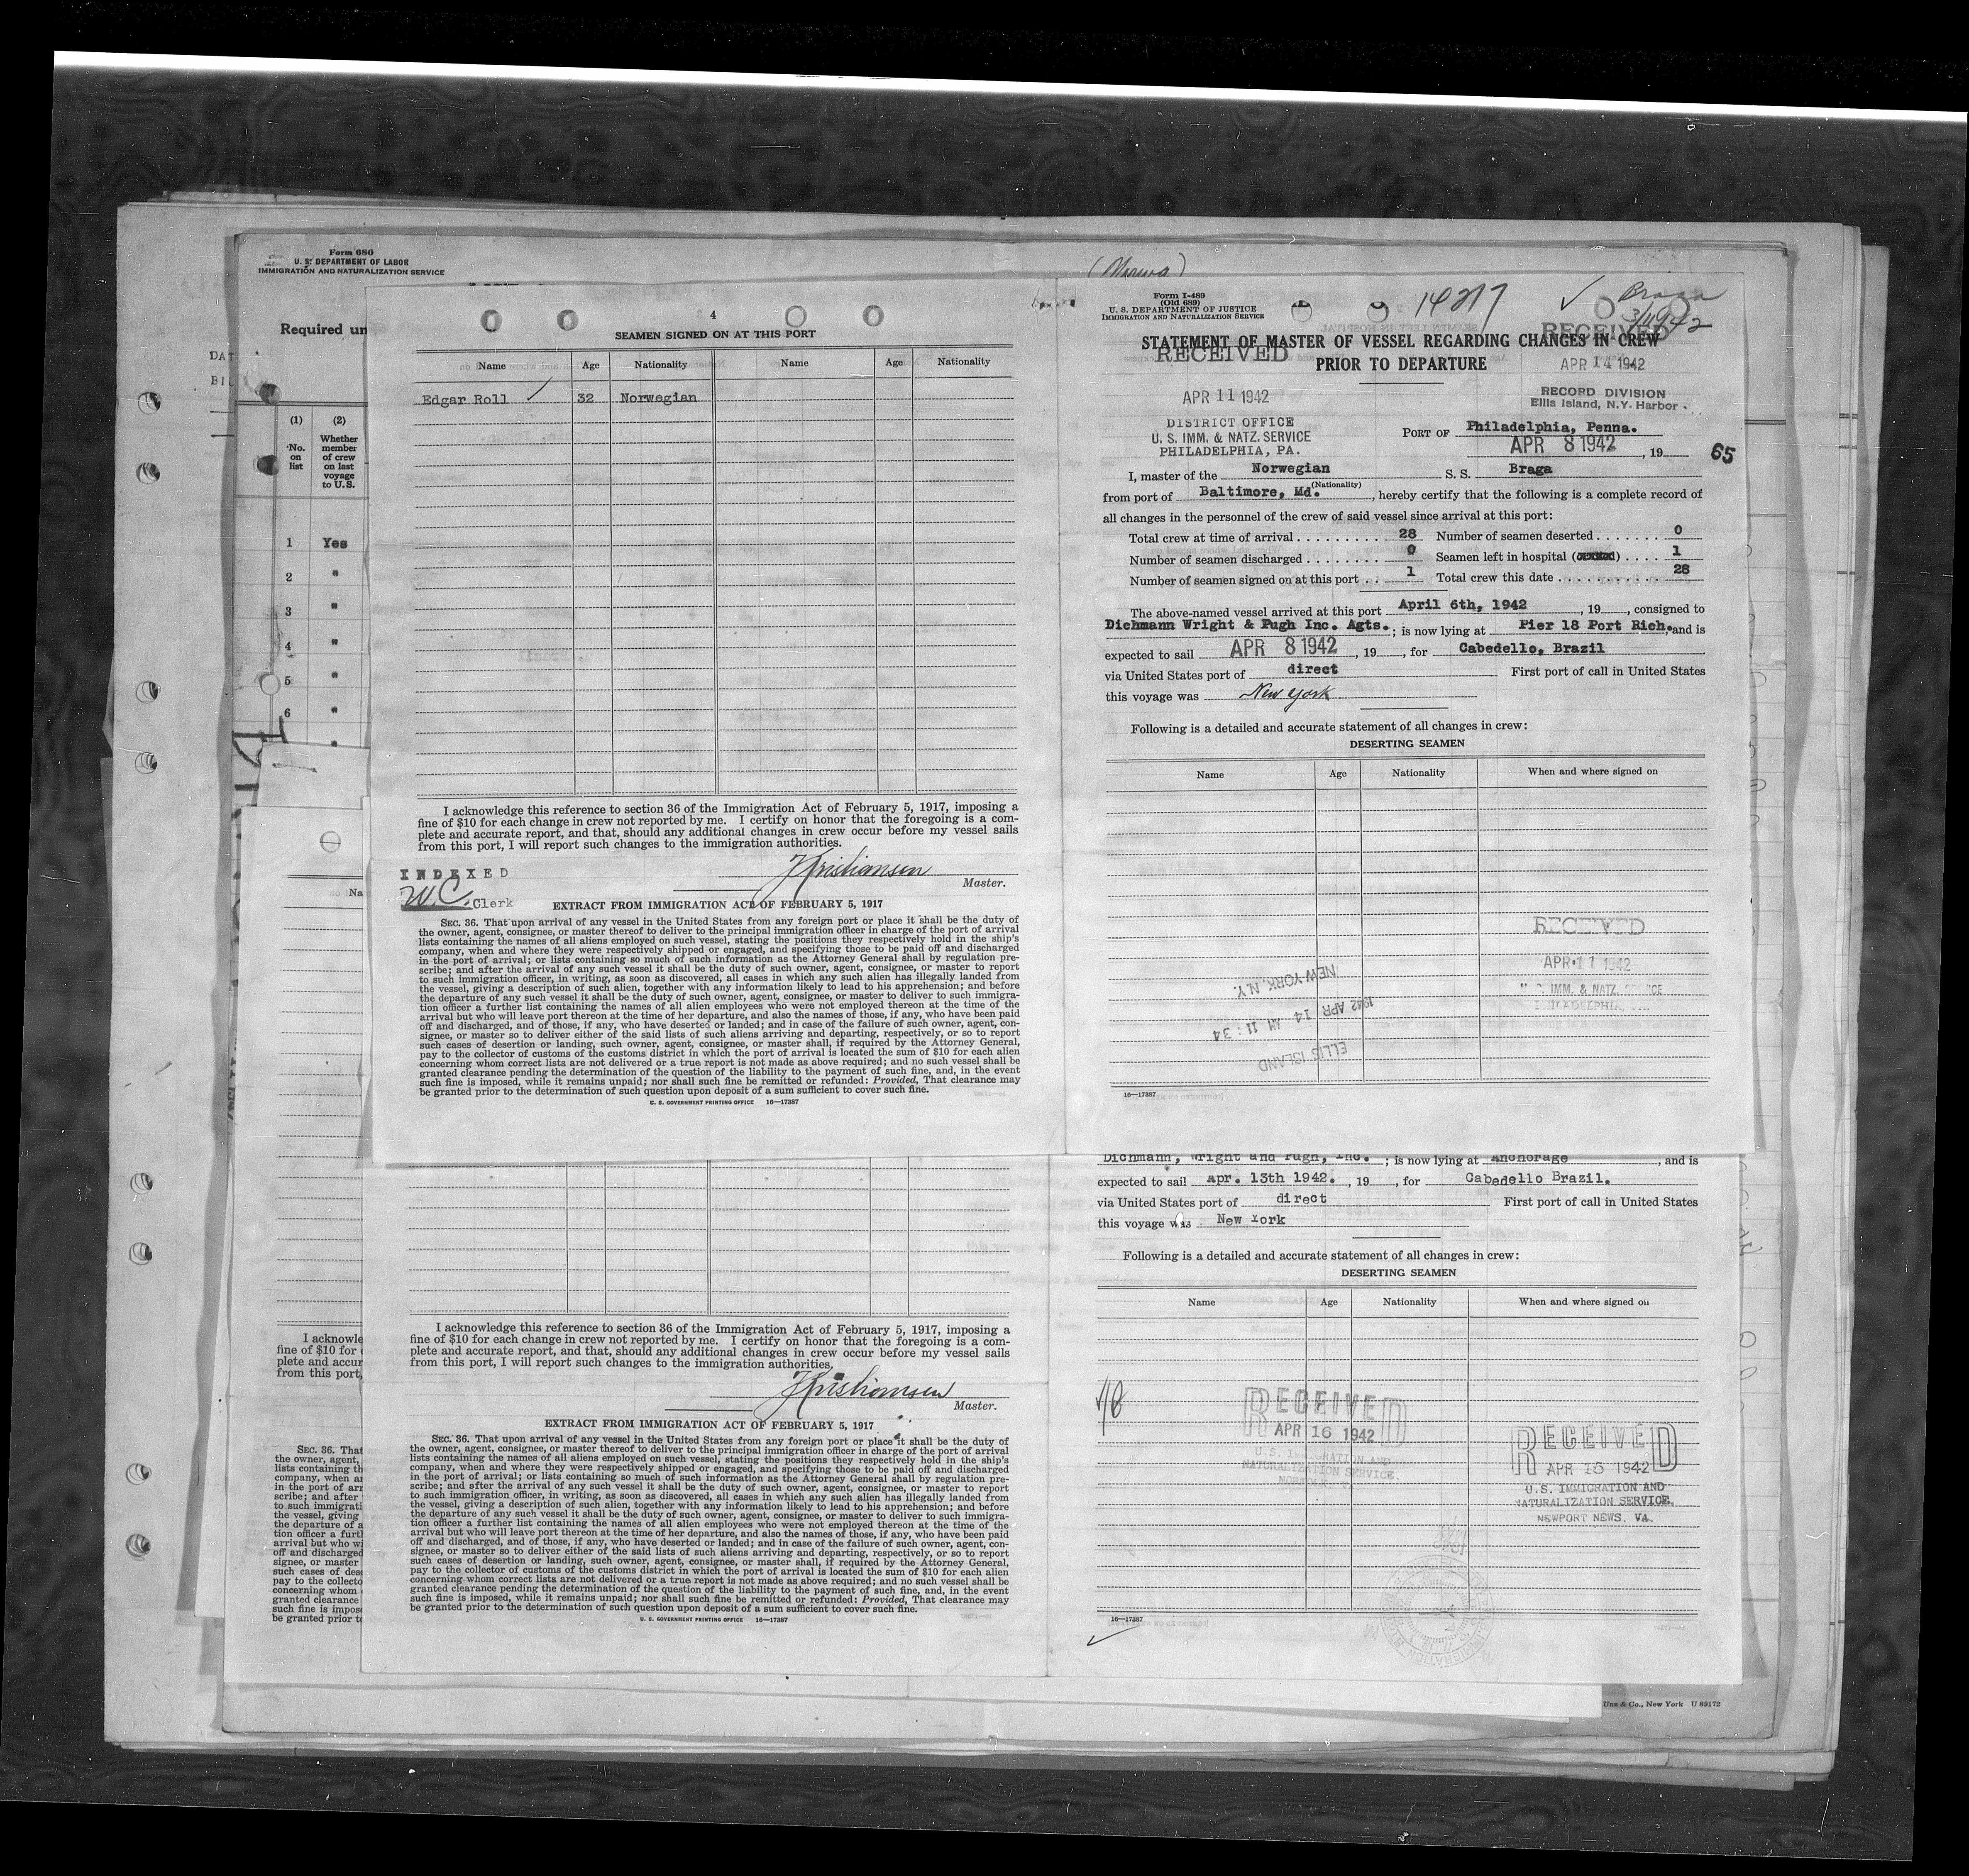 Form 680
U. S. DEPARTMENT OF LABOR
IMMIGRATION AND NATURALIZATION SERVICE
Required un
(1)
(2)
No.
on
list
Whether
member
of crew
on last
voyage
to U.S.
1 Yes
2 "
3 "
4 "
5 "
6 "
"
4
SEAMEN SIGNED ON AT THIS PORT
Name Age Nationality Name Age Nationality
Edgar Roll ✓ 32 Norwegian
I acknowledge this reference to section 36 of the Immigration Act of February 5, 1917, imposing a
fine of $10 for each change in crew not reported by me. I certify on honor that the foregoing is a com-
plete and accurate report, and that, should any additional changes in crew occur before my vessel sails
from this port, I will report such changes to the immigration authorities.
Kristiansen
Master.
INDEXED
W.C. Clerk
EXTRACT FROM IMMIGRATION ACT OF FEBRUARY 5, 1917
SEC. 36. That upon arrival of any vessel in the United States from any foreign port or place it shall be the duty of
the owner, agent, consignee, or master thereof to deliver to the principal immigration officer in charge of the port of arrival
lists containing the names of all aliens employed on such vessel, stating the positions they respectively hold in the ship's
company, when and where they were respectively shipped or engaged, and specifying those to be paid off and discharged
in the port of arrival; or lists containing so much of such information as the Attorney General shall by regulation pre-
scribe; and after the arrival of any such vessel it shall be the duty of such owner, agent, consignee, or master to report
to such immigration officer, in writing, as soon as discovered, all cases in which any such alien has illegally landed from
the vessel, giving a description of such alien, together with any information likely to lead to his apprehension; and before
the departure of any such vessel it shall be the duty of such owner, agent, consignee, or master to deliver to such immigra-
tion officer a further list containing the names of all alien employees who were not employed thereon at the time of the
arrival but who will leave port thereon at the time of her departure, and also the names of those, if any, who have been paid
off and discharged, and of those, if any, who have deserted or landed; and in case of the failure of such owner, agent, con-
signee, or master so to deliver either of the said lists of such aliens arriving and departing, respectively, or so to report
such cases of desertion or landing, such owner, agent, consignee, or master shall, if required by the Attorney General,
pay to the collector of customs of the customs district in which the port of arrival is located the sum of $10 for each alien
concerning whom correct lists are not delivered or a true report is not made as above required; and no such vessel shall be
granted clearance pending the determination of the question of the liability to the payment of such fine, and, in the event
such fine is imposed, while it remains unpaid; nor shall such fine be remitted or refunded: Provided, That clearance may
be granted prior to the determination of such question upon deposit of a sum sufficient to cover such fine.
U. S. GOVERNMENT PRINTING OFFICE 16—17387
Form I-489
(Old 689)
U. S. DEPARTMENT OF JUSTICE
IMMIGRATION AND NATURALIZATION SERVICE
14277
✓ Braga
RECEIVED
STATEMENT OF MASTER OF VESSEL REGARDING CHANGES IN CREW
PRIOR TO DEPARTURE
RECEIVED
APR 14 1942
APR 11 1942
RECORD DIVISION
Ellis Island, N.Y. Harbor
DISTRICT OFFICE
U. S. IMM. & NATZ. SERVICE
PHILADELPHIA, PA.
PORT OF Philadelphia, Penna.
APR 8 1942, 19
65
I, master of the Norwegian S. S. Braga
(Nationality)
from port of Baltimore, Md., hereby certify that the following is a complete record of
all changes in the personnel of the crew of said vessel since arrival at this port:
Total crew at time of arrival 28 Number of seamen deserted 0
Number of seamen discharged 0 Seamen left in hospital 1
Number of seamen signed on at this port 1 Total crew this date 28
The above-named vessel arrived at this port April 6th, 1942, 19, consigned to
Dichmann Wright & Pugh Inc. Agts.; is now lying at Pier 18 Port Rich., and is
expected to sail APR 8 1942, 19, for Cabedello, Brazil
via United States port of direct First port of call in United States
this voyage was New York
Following is a detailed and accurate statement of all changes in crew:
DESERTING SEAMEN
Name Age Nationality When and where signed on
RECEIVED
APR 11 1942
IMM. & NATZ. SERVICE
PHILADELPHIA,
NEW YORK, N.Y.
1942 APR 14 AM 11:34
ELLIS ISLAND
16—17387
Dichmann, Wright and Pugh, Inc.; is now lying at Anchorage, and is
expected to sail apr. 13th 1942., 19, for Cabedello Brazil.
via United States port of direct First port of call in United States
this voyage was New York
Following is a detailed and accurate statement of all changes in crew:
DESERTING SEAMEN
Name Age Nationality When and where signed on
RECEIVED
APR 16 1942
U.S. IMMIGRATION AND
NATURALIZATION SERVICE.
RECEIVED
APR 15 1942
U.S. IMMIGRATION AND
NATURALIZATION SERVICE.
NEWPORT NEWS, VA.
16—17387
I acknowledge this reference to section 36 of the Immigration Act of February 5, 1917, imposing a
fine of $10 for each change in crew not reported by me. I certify on honor that the foregoing is a com-
plete and accurate report, and that, should any additional changes in crew occur before my vessel sails
from this port, I will report such changes to the immigration authorities.
Kristiansen
Master.
EXTRACT FROM IMMIGRATION ACT OF FEBRUARY 5, 1917
SEC. 36. That upon arrival of any vessel in the United States from any foreign port or place it shall be the duty of
the owner, agent, consignee, or master thereof to deliver to the principal immigration officer in charge of the port of arrival
lists containing the names of all aliens employed on such vessel, stating the positions they respectively hold in the ship's
company, when and where they were respectively shipped or engaged, and specifying those to be paid off and discharged
in the port of arrival; or lists containing so much of such information as the Attorney General shall by regulation pre-
scribe; and after the arrival of any such vessel it shall be the duty of such owner, agent, consignee, or master to report
to such immigration officer, in writing, as soon as discovered, all cases in which any such alien has illegally landed from
the vessel, giving a description of such alien, together with any information likely to lead to his apprehension; and before
the departure of any such vessel it shall be the duty of such owner, agent, consignee, or master to deliver to such immigra-
tion officer a further list containing the names of all alien employees who were not employed thereon at the time of the
arrival but who will leave port thereon at the time of her departure, and also the names of those, if any, who have been paid
off and discharged, and of those, if any, who have deserted or landed; and in case of the failure of such owner, agent, con-
signee, or master so to deliver either of the said lists of such aliens arriving and departing, respectively, or so to report
such cases of desertion or landing, such owner, agent, consignee, or master shall, if required by the Attorney General,
pay to the collector of customs of the customs district in which the port of arrival is located the sum of $10 for each alien
concerning whom correct lists are not delivered or a true report is not made as above required; and no such vessel shall be
granted clearance pending the determination of the question of the liability to the payment of such fine, and, in the event
such fine is imposed, while it remains unpaid; nor shall such fine be remitted or refunded: Provided, That clearance may
be granted prior to the determination of such question upon deposit of a sum sufficient to cover such fine.
U. S. GOVERNMENT PRINTING OFFICE 16—17387
Na
I acknowle
fine of $10 for
plete and accur
from this port,
SEC. 36. That
the owner, agent,
lists containing th
company, when an
in the port of arri
scribe; and after
to such immigrati
the vessel, giving
the departure of a
tion officer a furt
arrival but who wi
off and discharged
signee, or master
such cases of dese
pay to the collecto
concerning whom
granted clearance
such fine is impos
be granted prior t
Unz & Co., New York U 89172